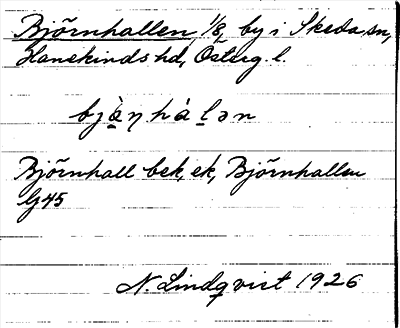 Björnhallen, 1/8, by i Skeda sn,
Hanekinds hd, Österg. l.
bjà̤ṇhá l̠ən
Björnhall bek, ek, Björnhallen
G45
N. Lindqvist 1926